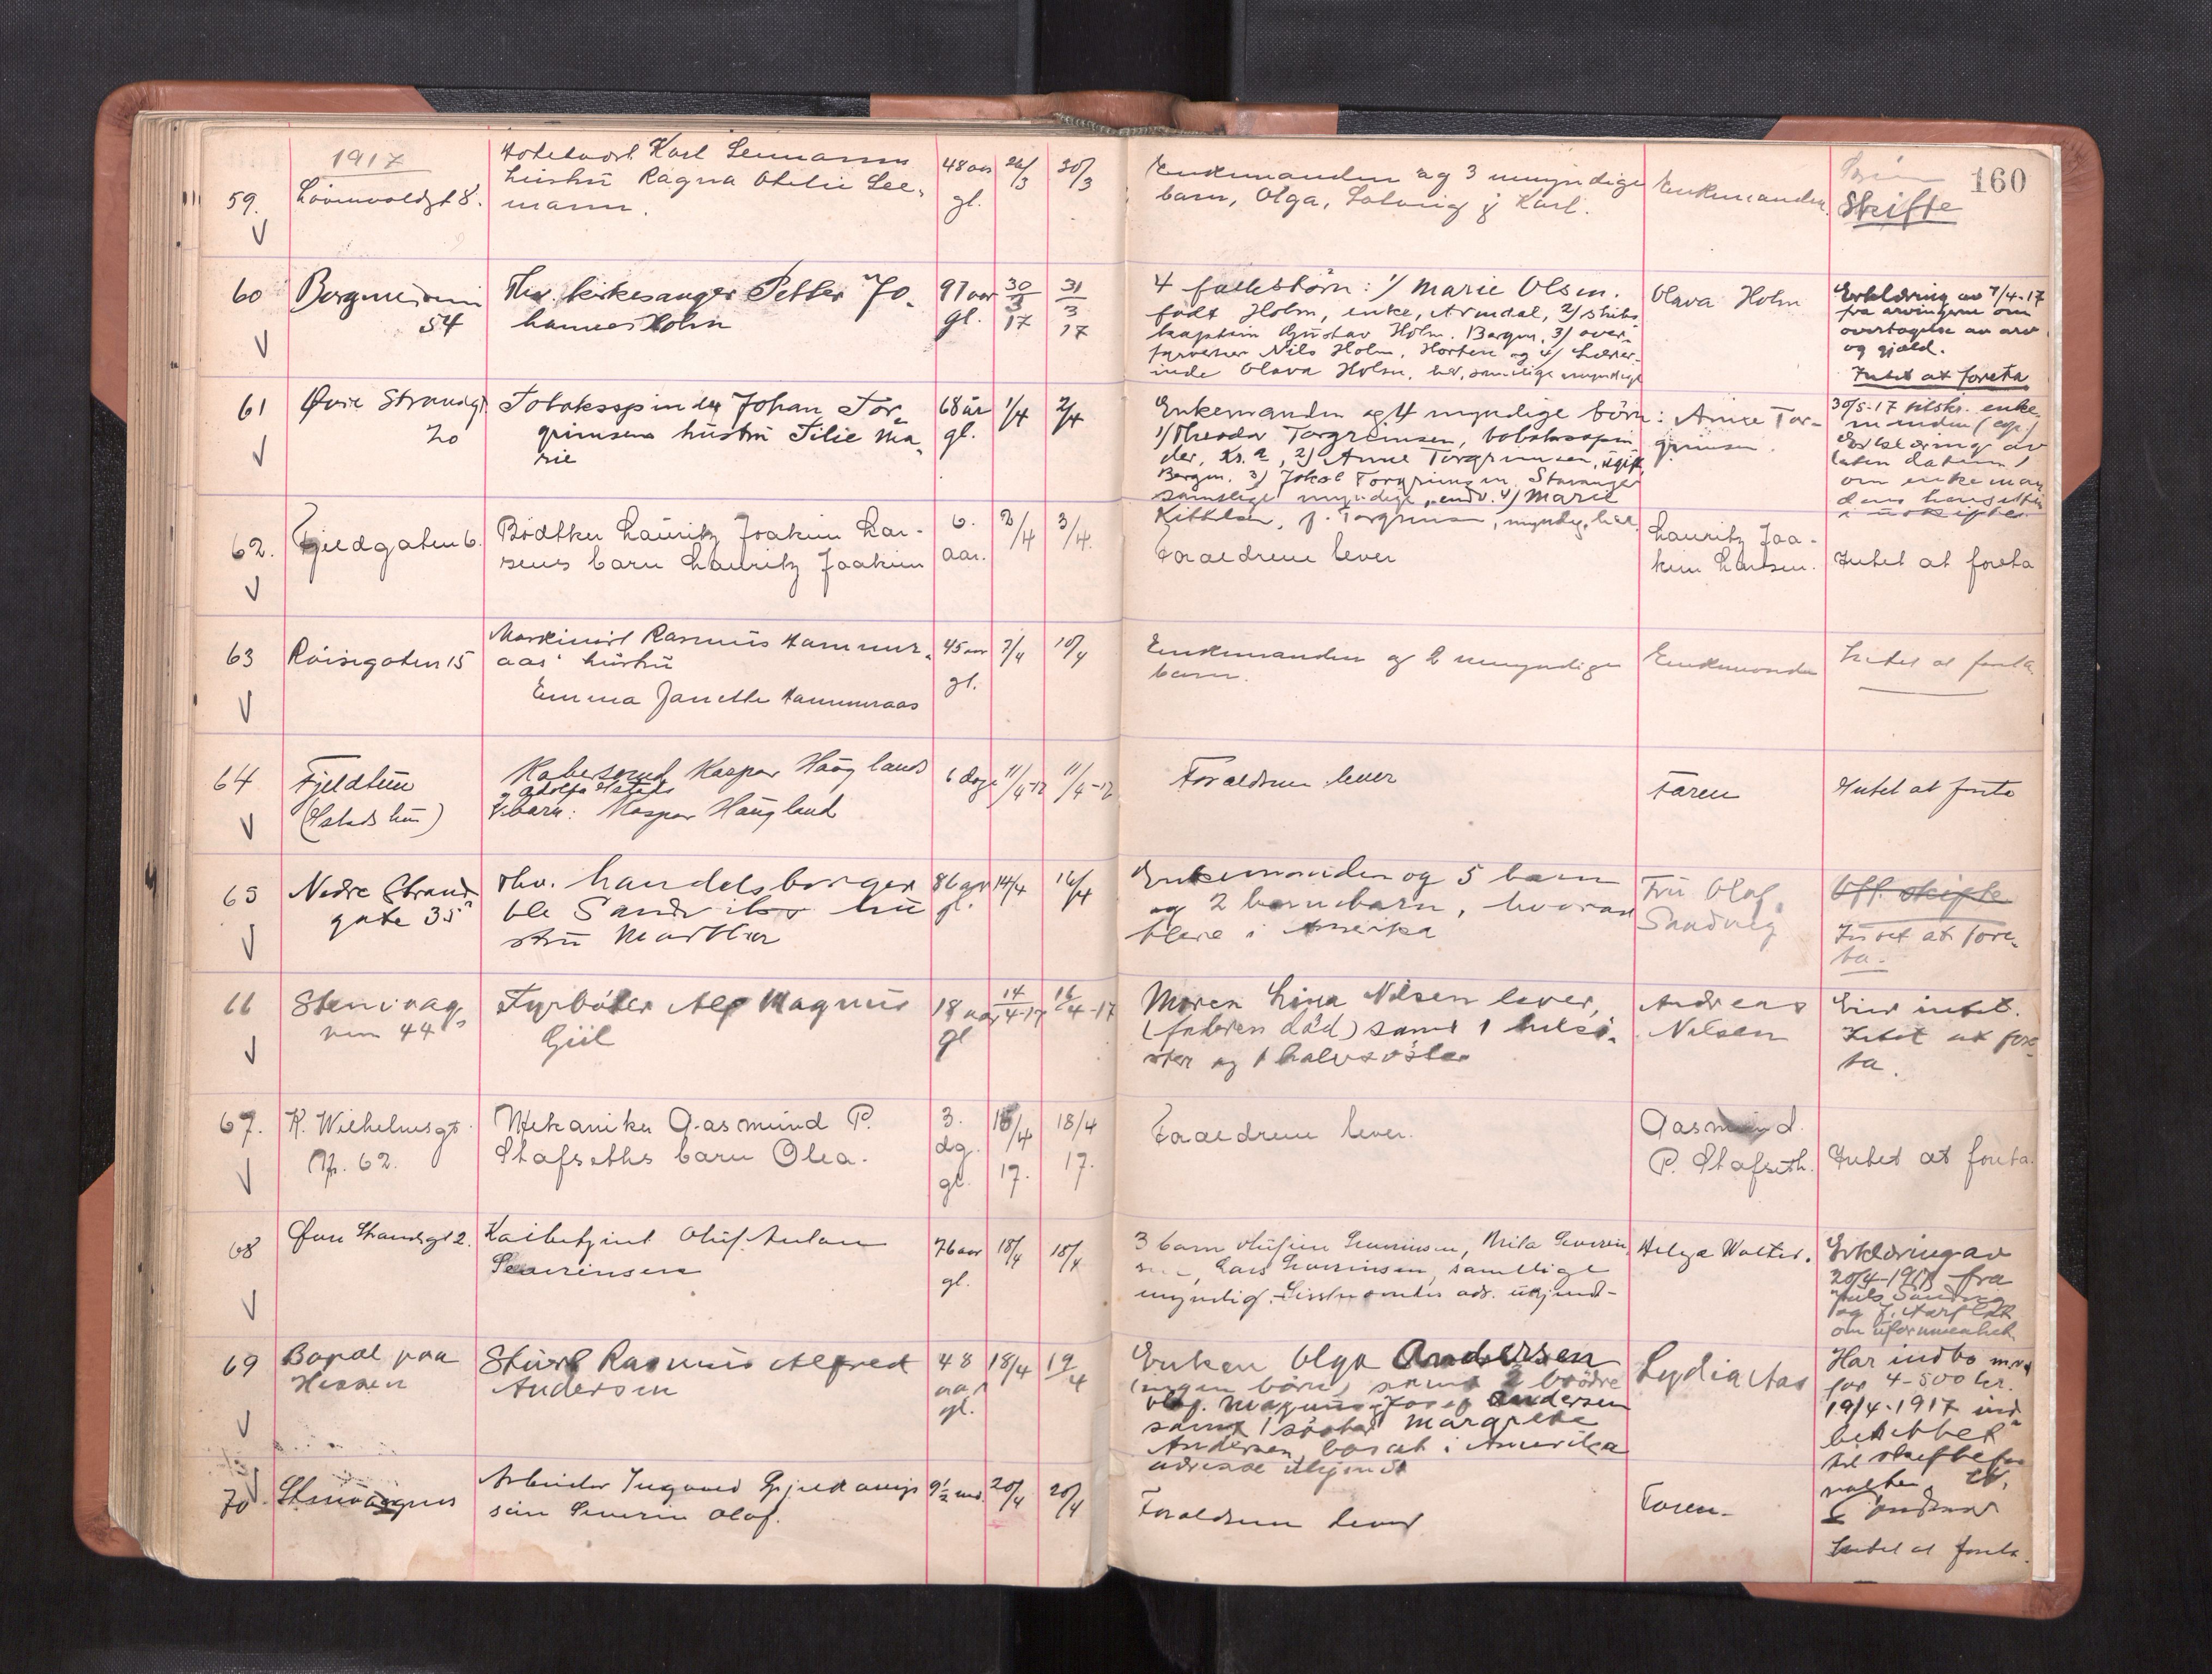 1917
160
59.
Hotelvært Karl Seemanns
hustru Ragna Otelie See-
mann.
48 aar
gl.
26/3
30/3
Enkemanden og 3 umyndige
barn, Olga, Solveig & Karl.
Enkemanden.
Skifte
60
Borgmesterv
54
fhv. kirkesanger Petter Jo-
hannes Holm
97 aar
gl.
30/3 17
31/3 17
4 fællesbörn: 1/ Marie Olsen.
født Holm, enke, Arendal, 2/ skibs
kaptein Gustav Holm, Bergen, 3) over-
fyrvokter Nils Holm, Horten og 4/ Lærer-
inde Olava Holm, her, samtlige myndige
Olava Holm
Erklæring av 7/4-17
fra arvingerne om
overtagelse av arv
og gjæld.
Intet at foreta
61
Øvre Strandgt
20
Tobaksspinder Johan Tor-
grimsens hustru Tilie Ma-
rie
68 år
gl.
1/4
2/4
Enkemanden og 4 myndige börn:
1/ Theodor Torgrimsen, tobaksspin
der, Kr.a, 2) Anne Torgrimsen, ugift,
Bergen. 3) Jakob Torgrimsen, Stavanger
samtlige myndige, endv. 4) Marie
Kittelsen, f. Torgrimsen, myndig, her
Anne Tor-
grimsen.
30/5-17 tilskr. enke-
manden
Erklæring av
om enkeman
dens hensidden
i uskiftet
62.
Fjeldgaten 6.
Bødtker Lauritz Joakim Lar-
sens barn Lauritz Joakim
6.
aar.
2/4
3/4.
Foraeldrene lever
Lauritz Joa-
kim Larsen.
Intet at foreta
63
Røisegaten 15
Maskinist Rasmus Hammer-
aas' hustru
Emma Janette Hammeraas
45 aar
gl.
7/4
10/4
Enkemanden og 2 umyndige
barn.
Enkemanden
Intet at foreta
64
Fjeldtun
Kaspar Haugland
barn: Kaspar Haugland
6 dage
11/4-17
11/4-17
Foraeldrene lever
Faren
Intet at foreta
65
Nedre Strand-
gate 35
fhv. handelsborger
Ole Sandviks hu
stru Marthe
86 aar
gl.
14/4
16/4
Enkemanden og 5 barn
og 2 barnebarn, hvorav
flere i Amerika
Fru Olaf
Sandvig
Off. skifte
Intet at fore-
ta.
66
Steinvaag
44
Fyrbøter Alf Magnus
Giil
18 aar
gl
14/4-17
16/4-17
Moren Lina Nilsen lever,
(faderen død) samt 1 helsö-
ster og 1 halvsöster
Andreas
Nilsen
Eier intet.
Intet at fore-
ta.
67.
K. Wilhelmsgt.
Nr. 62.
Mekaniker Aasmund P.
Stafseths barn Olea.
3.
dg.
gl.
15/4
17.
18/4
17.
Foraeldrene lever.
Aasmund.
P. Stafseth.
Intet at foreta.
68
Øvre Strandgt 2.
Kaibetjent Oluf Anton
Severinsen
76 aar
gl.
18/4
18/4
3 barn Olufine Severinsen, Mila Severin
sen, Lars Severinsen, samtlige
myndig. Sistnævntes adr. ukjendt-
Helga Walter.
Erklæring av
20/4-1917 fra
om uformuenhet
69
Bopæl paa
Hessen
Stuert Rasmus Alfred
Andersen
48
aar
gl.
18/4
19/4
Enken Olga Andersen
(ingen börn) samt 2 brödre
Olaf Magnus og Josef Andersen
samt 1 söster Margrete
Andersen, bosat i Amerika
adresse ukjendt
Lydia Aas
Har indbo m.v.
for 4-500 kr.
19/4-1917 ind-
berettet
til skiftefor
valter
70.
Steinvaagnes
Arbeider Ingvard Gjerdevigs
søn Severin Olaf.
9½ md.
20/4
20/4
Foraeldrene lever
Faren.
Intet at foreta.